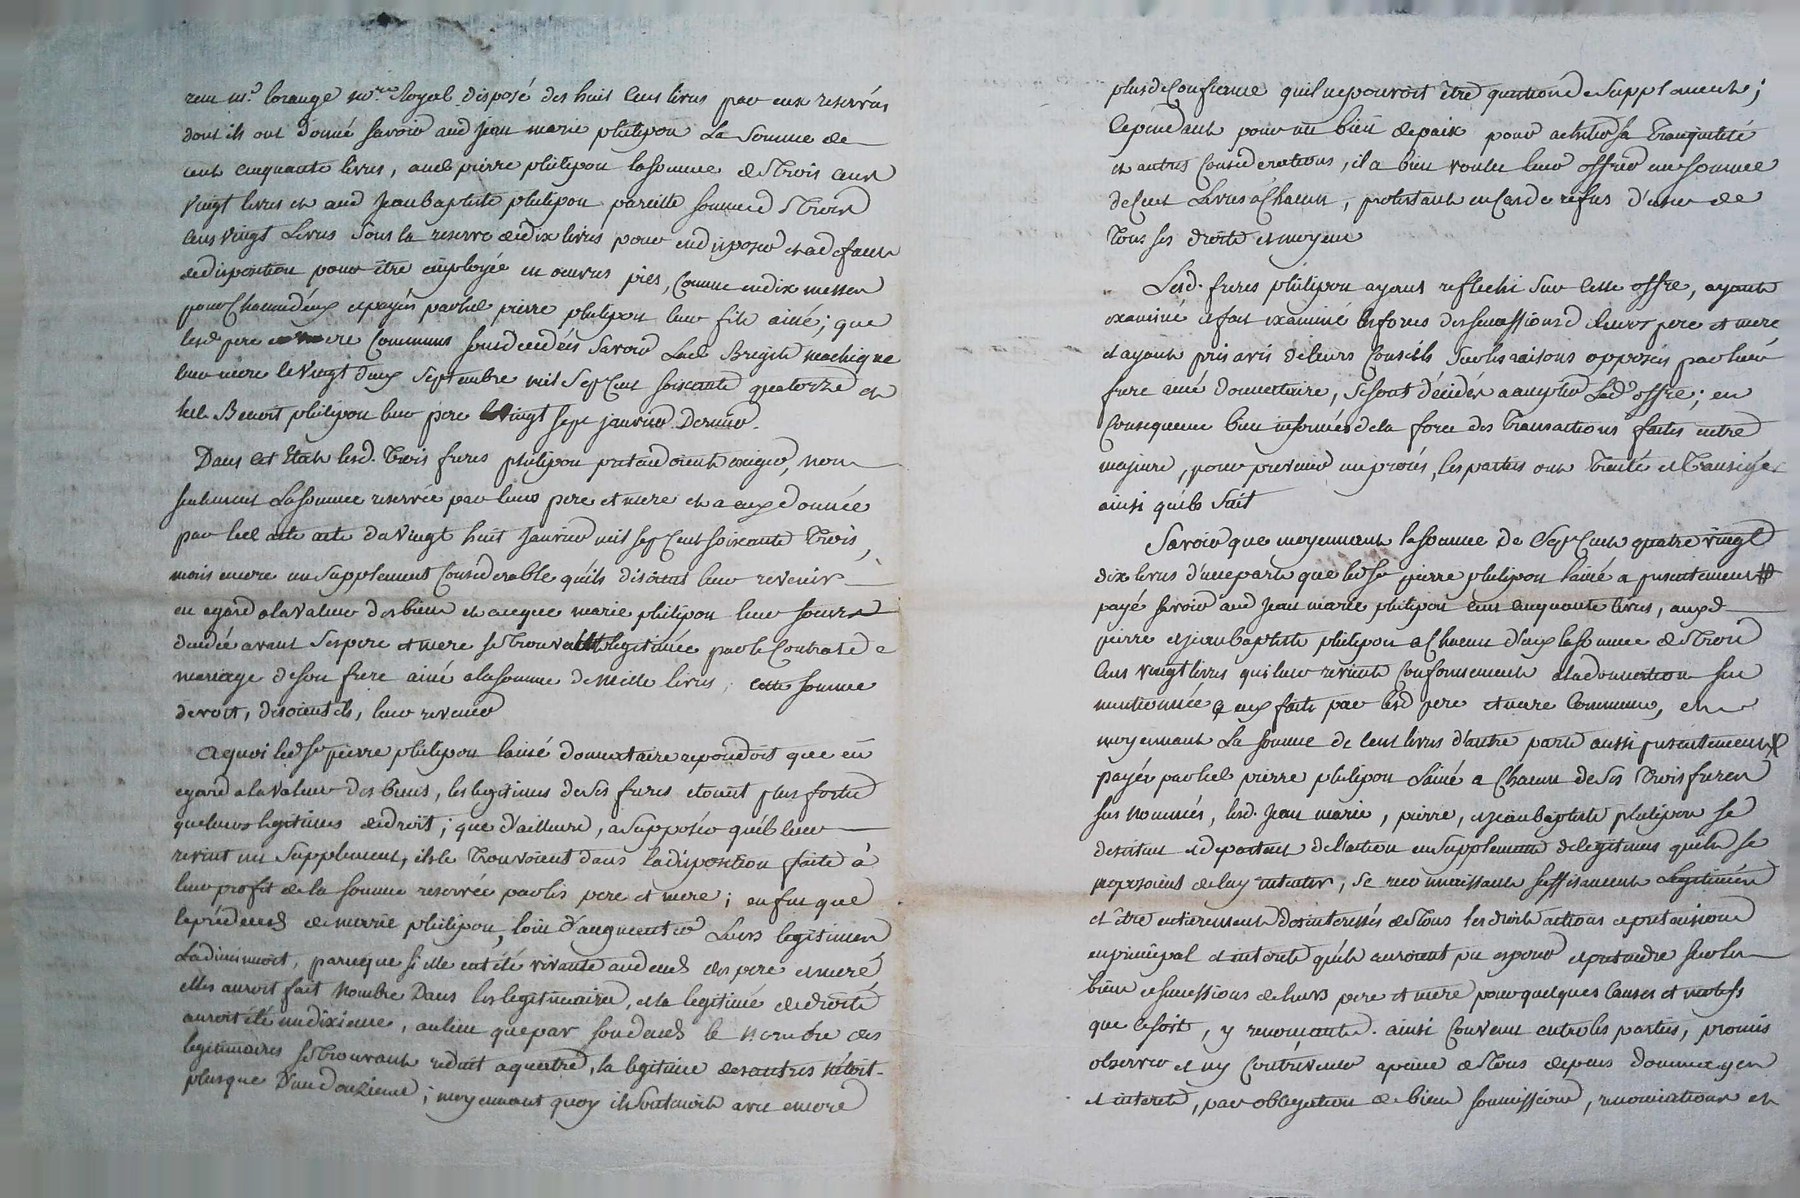 reçu m.e lorange no.re Royal disposé des huit Cens livres par eux reservés
dont ils ont donné Savoir aud Jean marie philipon La Somme de
cent cinquante livres, aud pierre philipon la somme de trois cens
vingt livres et aud Jean Baptiste philipon pareille somme de trois
Cens vingt Livres Sous la reserve de dix livres pour en disposer et a defaut
de disposition pour être employée en œuvres pies, Comme en dix messes
pour Chacun d'eux et payés par led pierre philipon leur fils ainé; que
lesd pere et mere Communs sont decedés Savoir Lad Brigite machigne
leur mere le vingt deux Septembre mil Sept Cent soixante quatorze et
led Benoit philipon leur pere le vingt sept janvier Dernier.
Dans Cet Etat lesd. trois freres philipon pretendoient exiger, non
seulement la somme reservée par leurs pere et mere et a eux donnée
par led acte du vingt huit Janvier mil sept Cent soixante trois,
mais encore un Supplement Considerable qu'ils disoient leur revenir
eu egard a la valeur des biens et ce que marie philipon leur soeur
decedée avant Ses pere et mere se trouvant legitimée par le Contrat de
mariage de son frere ainé a la somme de Mille livres; cette somme
devoit, disoient ils, leur revenir
A quoi led Sr pierre philipon l'ainé donnataire repondoit que eu
egard a la valeur des biens, les legitimes de ses freres etoient plus fortes
que leurs legitimes de droit; que d'ailleurs, a supposer qu'il leur
revint un Supplement, ils le trouvoient dans la disposition faite à
leur profit de la somme reservée par les pere et mere; enfin que
le prédecés de marie philipon, loin d'augmenter Leurs legitimes
La diminuoit, parceque si elle eut été vivante au deces des pere et mere
elles auroit fait Nombre Dans les legitimaires, et la legitime de droit
auroit été un dixieme, au lieu que par son deces le nombre des
legitimaires se trouvant reduit a quatre, la legitime des autres n'étoit
plus que D'un douzieme; moyennant quoy ils soutenoit avec encore
plus de Confience qu'il ne pouvoit être question de Supplement;
Cependant pour un bien de paix pour acheter sa tranquilité
et autres Considerations, il a bien voulu leur offrir une somme
de Cent Livres a Chacun, protestant en Cas de refus d'user de
tous ses droits et moyens
Lesd. freres philipon ayant reflechi Sur Cette offre, ayant
examiné et fait examiné les forces des successions de leurs pere et mere
et ayant pris avis de leurs Conseils Sur les raisons opposées par leur
frere ainé donnataire, se sont décidés a accepter Lad. offre; en
Consequence bien informés de la force des transactions faites entre
majeurs, pour prevenir un procés, les parties ont traité et transigé
ainsi qu'ils Suit
Savoir que moyennant la somme de Sept Cent quatre vingt
dix livres d'une part que led Sr pierre philipon l'ainé a presentement
payé Savoir aud Jean marie philipon Cent cinquante livres, auxd
pierre et jean baptiste philipon a Chacun d'eux la somme de trois
Cens vingt livres qui leur revient Conformement a la donnation sus
mentionnée a eux faite par lesd pere et mere Communs, et
moyennant La somme de Cent livres d'autre part aussi presentement
payée par led pierre philipon L'ainé a Chacun de ses trois freres
sus Nommés, lesd. Jean marie, pierre, et jean baptiste philipon se
desistent et departent de l'action en supplement de legitimes qu'ils se
proposoient de luy intenter, se reconnoissant suffisament Legitimés
et être entierement Desinteressés de tous les droits actions et pretentions
en principal et interets qu'ils auroient pu esperer et pretendre sur les
biens et successions de leurs pere et mere pour quelques Causes et motifs
que ce soit, y renonçants. ainsi Convenu entre les parties, promis
observer et n'y Contrevenir a peine de tous depens dommages
et interets, par obligation de biens soumissions, renonciations et